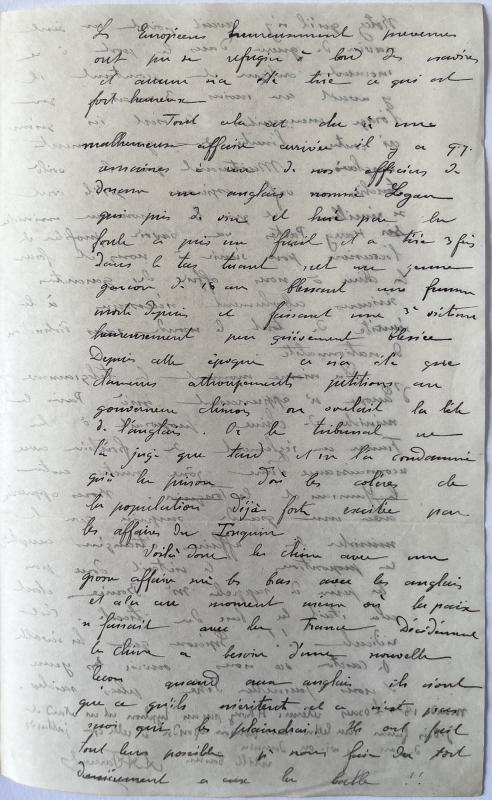 Les Européens heureusement prévenus
ont pu se réfugier à bord des navires
et aucun n'a été tué ce qui est
fort heureux
Tout cela est dû à une
malheureuse affaire arrivée il y a qq.
semaines à un de nos officiers de
douane un anglais nommé Logan
qui pris de vin et hué par la
foule a pris un fusil et a tiré 3 fois
dans le tas tuant net un jeune
garçon de 13 ans blessant une femme
morte depuis et faisant une 3e victime
heureusement peu grièvement blessée
Depuis cette époque ce n'a été que
clameurs attroupements pétitions au
gouverneur chinois on voulait la tête
de l'anglais. Or le tribunal ne
l'a jugé que tard et ne l'a condamné
qu'à la prison. D'où les colères de
la population déjà fort excitée par
les affaires du Tonquin
Voilà donc la chine avec une
grosse affaire sur les bras avec les anglais
et cela au moment même où la paix
se faisait avec la France Décidément
la chine a besoin d'une nouvelle
leçon quand aux anglais ils n'ont
que ce qu'ils méritent et ce n'est pas
moi qui les plaindrai. Ils ont fait
tout leur possible pr nous faire du tort
doucement a eux la balle !!